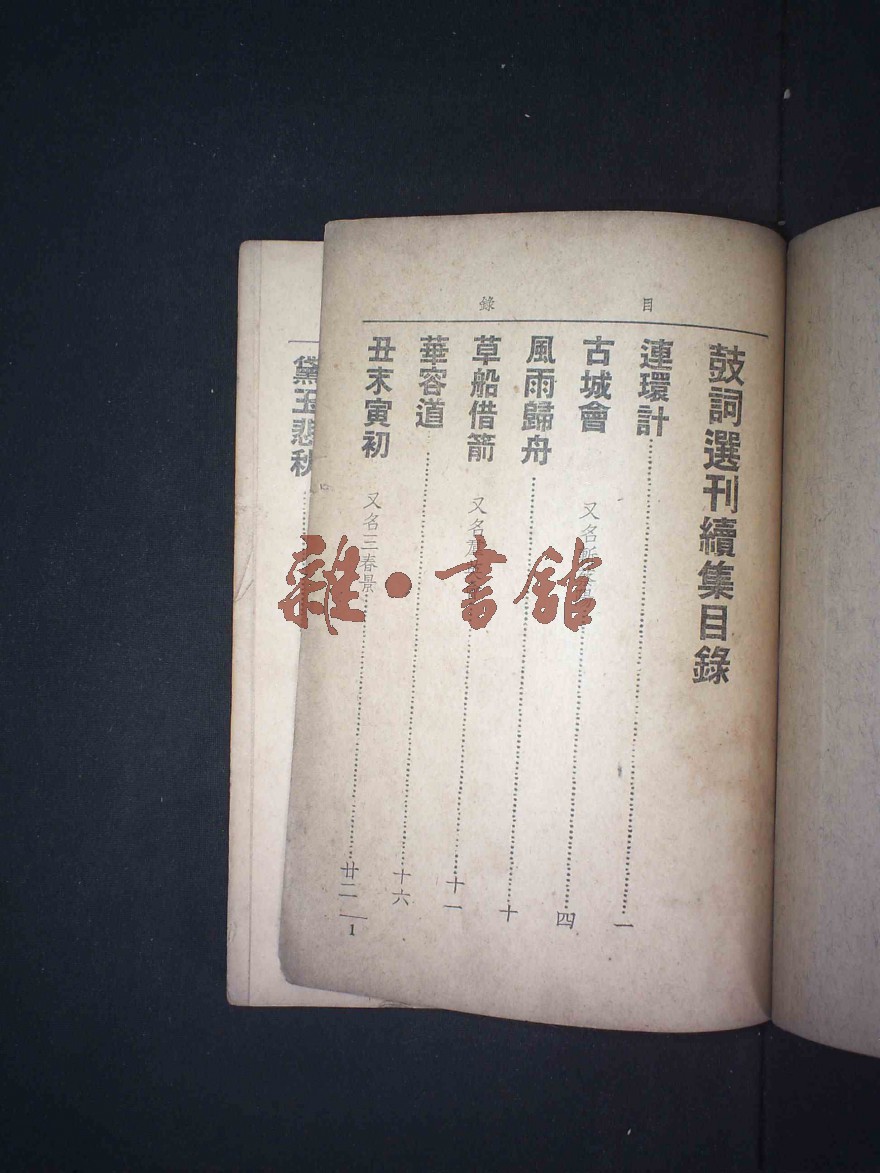 目 錄
鼓詞選刊續集目錄
連環計 一
古城會 又名 四
風雨歸舟 十
草船借箭 又名 十一
華容道 十六
丑末寅初 又名三春景 廿二
1
黛玉悲秋
雜·書館